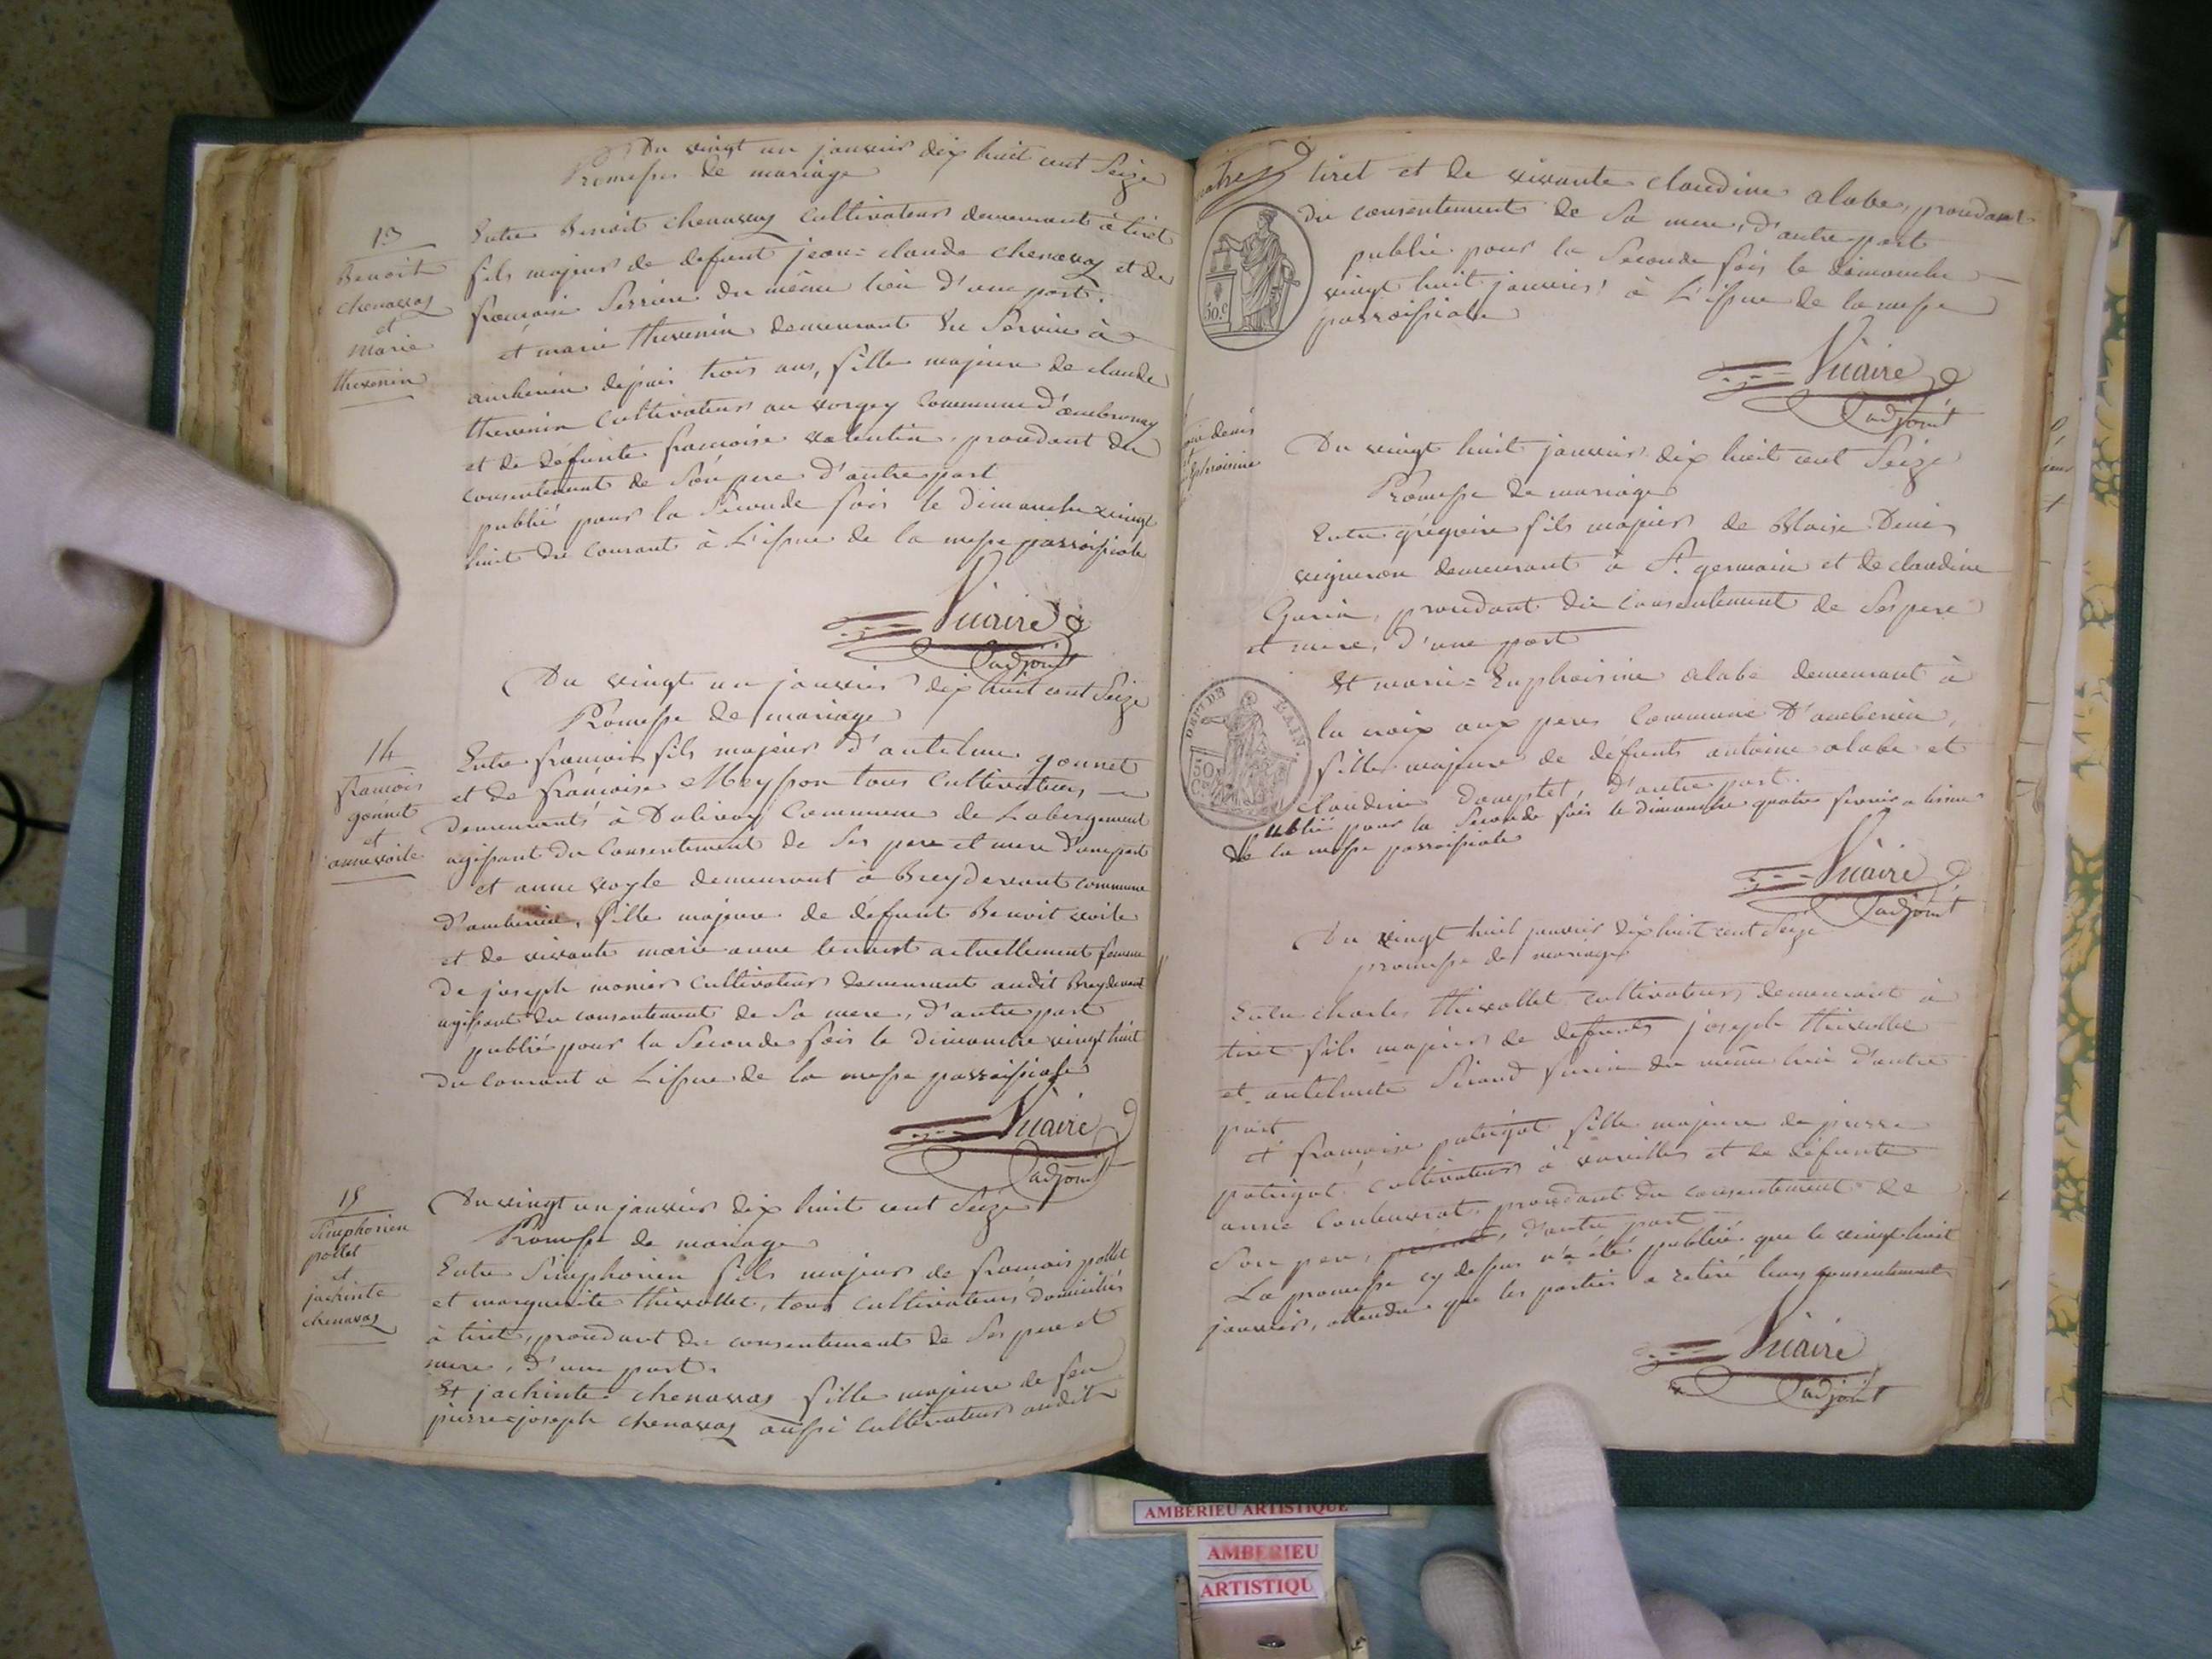 Du vingt un janvier dix huit cent Seize
Promesse de mariage
13
Benoit
chenavas
et
Marie
thevenin
Entre Benoit chenavas cultivateur demeurant à tiret
fils majeur de defunt jean=claude chenavas et de
françoise Serriere du même lieu d'une part.
et marie thevenin demeurant en Service à
amberieu depuis trois ans, fille majeure de claude
thevenin cultivateur au vorgey commune d'ambronay
et de defunte françoise valentin, procedant du
consentement de Son pere d'autre part
publié pour la Seconde fois le dimanche vingt
huit du courant à L'issue de la messe parroissiale
Vicaire
adjoint
Du vingt un janvier dix huit cent Seize
Promesse de mariage
14
francois
gonnet
et
anne voile
Entre francois fils majeur d'antelme gonnet
et de françoise Meysson tous cultivateurs
demeurants à Dalivoy commune de Labergement
agissant du Consentement de Ses pere et mere d'une part
et anne voyle demeurant à Breydevant commune
d'amberieu, fille majeure de défunt Benoit voile
et de vivante marie anne actuellement femme
de joseph monier cultivateur demeurant audit Breydevant
agissant du consentement de Sa mere, d'autre part
publié pour la Seconde fois le dimanche vingt huit
du courant a L'issue de la messe parroissiale
Vicaire
adjoint
15
Simphorien
pollet
et
jachinte
chenavas
Du vingt un janvier dix huit cent Seize
Promesse de mariage
Entre Simphorien fils majeur de francois pollet
et marguerite thevollet, tous cultivateurs domiciliés
à tiret, procedant du consentement de Ses pere et
mere, d'une part.
Et jachinte chenavas fille majeure de feu
pierre=joseph chenavas aussi cultivateur audit
tiret et de vivante claudine alabe, procedant
du consentement de Sa mere, d'autre part
publié pour la Seconde fois le dimanche
vingt huit janvier à L'issue de la messe
parroissiale
50.c
Vicaire
adjoint
denis
Ephroisine
Du vingt huit janvier dix huit cent Seize
Promesse de mariage
Entre grégoire fils majeur de Blaise Denis
vigneron demeurant à St. germain et de claudine
Garin, procedant du consentement de Ses pere
et mere, d'une part
Et marie=Euphroisine alabe demeurant à
la croix aux peres commune D'amberieu,
fille majeure de défunts antoine alabe et
claudine Domptet, d'autre part.
publié pour la Seconde fois le dimanche quatre fevrier a lissue
de la messe parroissiale
DEPT. DE L'AIN.
50
Vicaire
adjoint
Du vingt huit janvier dix huit cent Seize
promesse de mariage
Entre charles thevollet cultivateur demeurant à
tiret fils majeur de defunts joseph thevollet
et antelmette Sicard du même lieu d'autre
part
et françoise patrigot fille majeure de pierre
patrigot cultivateur à vareilles et de défunte
anne procedant du consentement de
Son pere, present, d'autre part
La promesse cy dessus n'a été publiée que le vingt huit
janvier, attendu que les parties a retiré leur consentement
Vicaire
adjoint
AMBERIEU ARTISTIQUE
AMBERIEU
ARTISTIQU